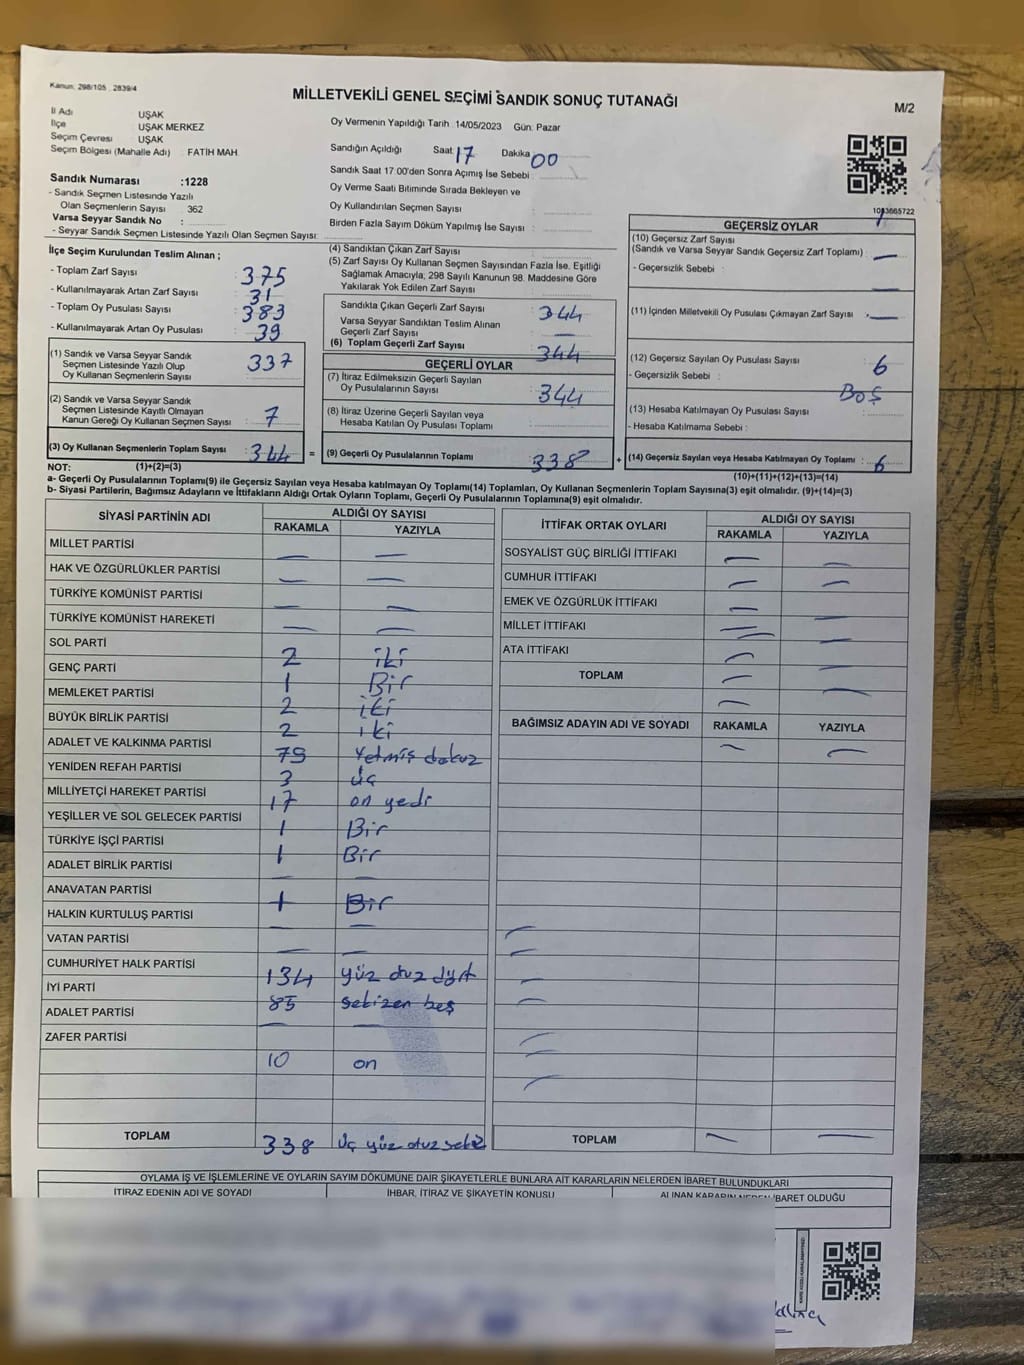 Kanun: 298/105 , 2839/4
MİLLETVEKİLİ GENEL SEÇİMİ SANDIK SONUÇ TUTANAĞI
M/2
İl Adı UŞAK
İlçe UŞAK MERKEZ
Seçim Çevresi : UŞAK
Seçim Bölgesi (Mahalle Adı) : FATİH MAH.
Oy Vermenin Yapıldığı Tarih :14/05/2023 Gün: Pazar
Sandığın Açıldığı Saat 17 Dakika 00
Sandık Saat 17:00'den Sonra Açımış İse Sebebi :
Oy Verme Saati Bitiminde Sırada Bekleyen ve
Oy Kullandırılan Seçmen Sayısı :
Birden Fazla Sayım Döküm Yapılmış İse Sayısı :
Sandık Numarası :1228
- Sandık Seçmen Listesinde Yazılı
Olan Seçmenlerin Sayısı : 362
Varsa Seyyar Sandık No :
- Seyyar Sandık Seçmen Listesinde Yazılı Olan Seçmen Sayısı:
1013665722
İlçe Seçim Kurulundan Teslim Alınan ;
- Toplam Zarf Sayısı : 375
- Kullanılmayarak Artan Zarf Sayısı : 31
- Toplam Oy Pusulası Sayısı : 383
- Kullanılmayarak Artan Oy Pusulası : 39
(1) Sandık ve Varsa Seyyar Sandık
Seçmen Listesinde Yazılı Olup
Oy Kullanan Seçmenlerin Sayısı : 337
(2) Sandık ve Varsa Seyyar Sandık
Seçmen Listesinde Kayıtlı Olmayan
Kanun Gereği Oy Kullanan Seçmen Sayısı : 7
(3) Oy Kullanan Seçmenlerin Toplam Sayısı : 344 =
(4) Sandıktan Çıkan Zarf Sayısı :
(5) Zarf Sayısı Oy Kullanan Seçmen Sayısından Fazla İse, Eşitliği
Sağlamak Amacıyla, 298 Sayılı Kanunun 98. Maddesine Göre
Yakılarak Yok Edilen Zarf Sayısı :
Sandıkta Çıkan Geçerli Zarf Sayısı : 344
Varsa Seyyar Sandıktan Teslim Alınan
Geçerli Zarf Sayısı : —
(6) Toplam Geçerli Zarf Sayısı : 344
GEÇERLİ OYLAR
(7) İtiraz Edilmeksizin Geçerli Sayılan
Oy Pusulalarının Sayısı : 344
(8) İtiraz Üzerine Geçerli Sayılan veya
Hesaba Katılan Oy Pusulası Toplamı :
(9) Geçerli Oy Pusulalarının Toplamı : 338 +
GEÇERSİZ OYLAR
(10) Geçersiz Zarf Sayısı
(Sandık ve Varsa Seyyar Sandık Geçersiz Zarf Toplamı) : —
- Geçersizlik Sebebi : —
(11) İçinden Milletvekili Oy Pusulası Çıkmayan Zarf Sayısı : —
(12) Geçersiz Sayılan Oy Pusulası Sayısı : 6
- Geçersizlik Sebebi : Boş
(13) Hesaba Katılmayan Oy Pusulası Sayısı :
- Hesaba Katılmama Sebebi :
(14) Geçersiz Sayılan veya Hesaba Katılmayan Oy Toplamı : 6
NOT: (1)+(2)=(3)
(10)+(11)+(12)+(13)=(14)
a- Geçerli Oy Pusulalarının Toplamı(9) ile Geçersiz Sayılan veya Hesaba katılmayan Oy Toplamı(14) Toplamları, Oy Kullanan Seçmenlerin Toplam Sayısına(3) eşit olmalıdır. (9)+(14)=(3)
b- Siyasi Partilerin, Bağımsız Adayların ve İttifakların Aldığı Ortak Oyların Toplamı, Geçerli Oy Pusulalarının Toplamına(9) eşit olmalıdır.
SİYASİ PARTİNİN ADI
ALDIĞI OY SAYISI
RAKAMLA YAZIYLA
MİLLET PARTİSİ — —
HAK VE ÖZGÜRLÜKLER PARTİSİ — —
TÜRKİYE KOMÜNİST PARTİSİ — —
TÜRKİYE KOMÜNİST HAREKETİ — —
SOL PARTİ 2 iki
GENÇ PARTİ 1 Bir
MEMLEKET PARTİSİ 2 iki
BÜYÜK BİRLİK PARTİSİ 2 iki
ADALET VE KALKINMA PARTİSİ 79 Yetmiş dokuz
YENİDEN REFAH PARTİSİ 3 üç
MİLLİYETÇİ HAREKET PARTİSİ 17 on yedi
YEŞİLLER VE SOL GELECEK PARTİSİ 1 Bir
TÜRKİYE İŞÇİ PARTİSİ 1 Bir
ADALET BİRLİK PARTİSİ — —
ANAVATAN PARTİSİ 1 Bir
HALKIN KURTULUŞ PARTİSİ — —
VATAN PARTİSİ — —
CUMHURİYET HALK PARTİSİ 134 yüz otuz dört
İYİ PARTİ 85 seksen beş
ADALET PARTİSİ — —
ZAFER PARTİSİ 10 on
TOPLAM 338 üç yüz otuz sekiz
İTTİFAK ORTAK OYLARI
ALDIĞI OY SAYISI
RAKAMLA YAZIYLA
SOSYALİST GÜÇ BİRLİĞİ İTTİFAKI — —
CUMHUR İTTİFAKI — —
EMEK VE ÖZGÜRLÜK İTTİFAKI — —
MİLLET İTTİFAKI — —
ATA İTTİFAKI — —
TOPLAM — —
BAĞIMSIZ ADAYIN ADI VE SOYADI RAKAMLA YAZIYLA
TOPLAM — —
OYLAMA İŞ VE İŞLEMLERİNE VE OYLARIN SAYIM DÖKÜMÜNE DAİR ŞİKAYETLERLE BUNLARA AİT KARARLARIN NELERDEN İBARET BULUNDUKLARI
İTİRAZ EDENİN ADI VE SOYADI
İHBAR, İTİRAZ VE ŞİKAYETİN KONUSU
ALINAN KARARIN NEDEN İBARET OLDUĞU